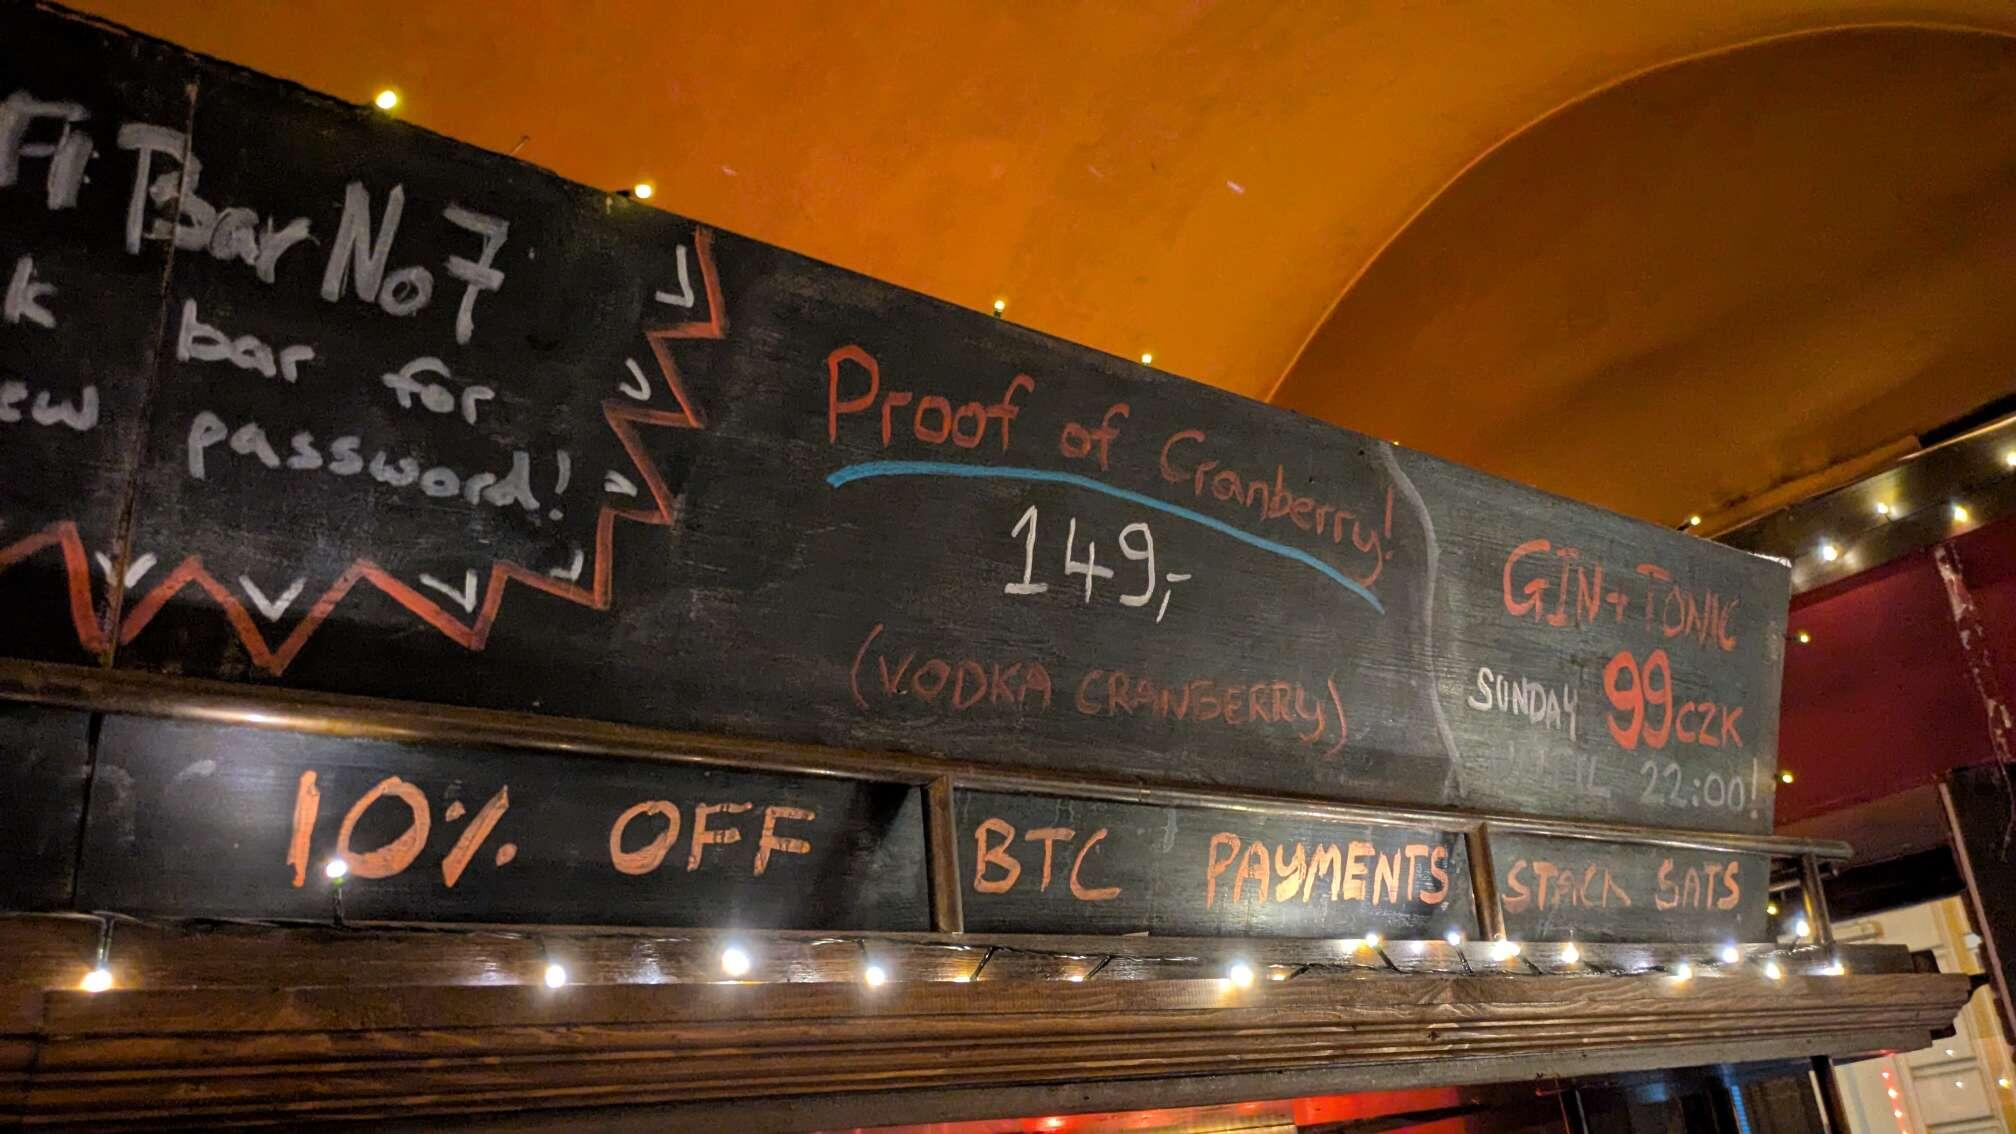 Bar No7
bar for
password!
Proof of Cranberry!
149,-
(VODKA CRANBERRY)
GIN + TONIC
SUNDAY 99CZK
UNTIL 22:00!
10% OFF BTC PAYMENTS STACK SATS